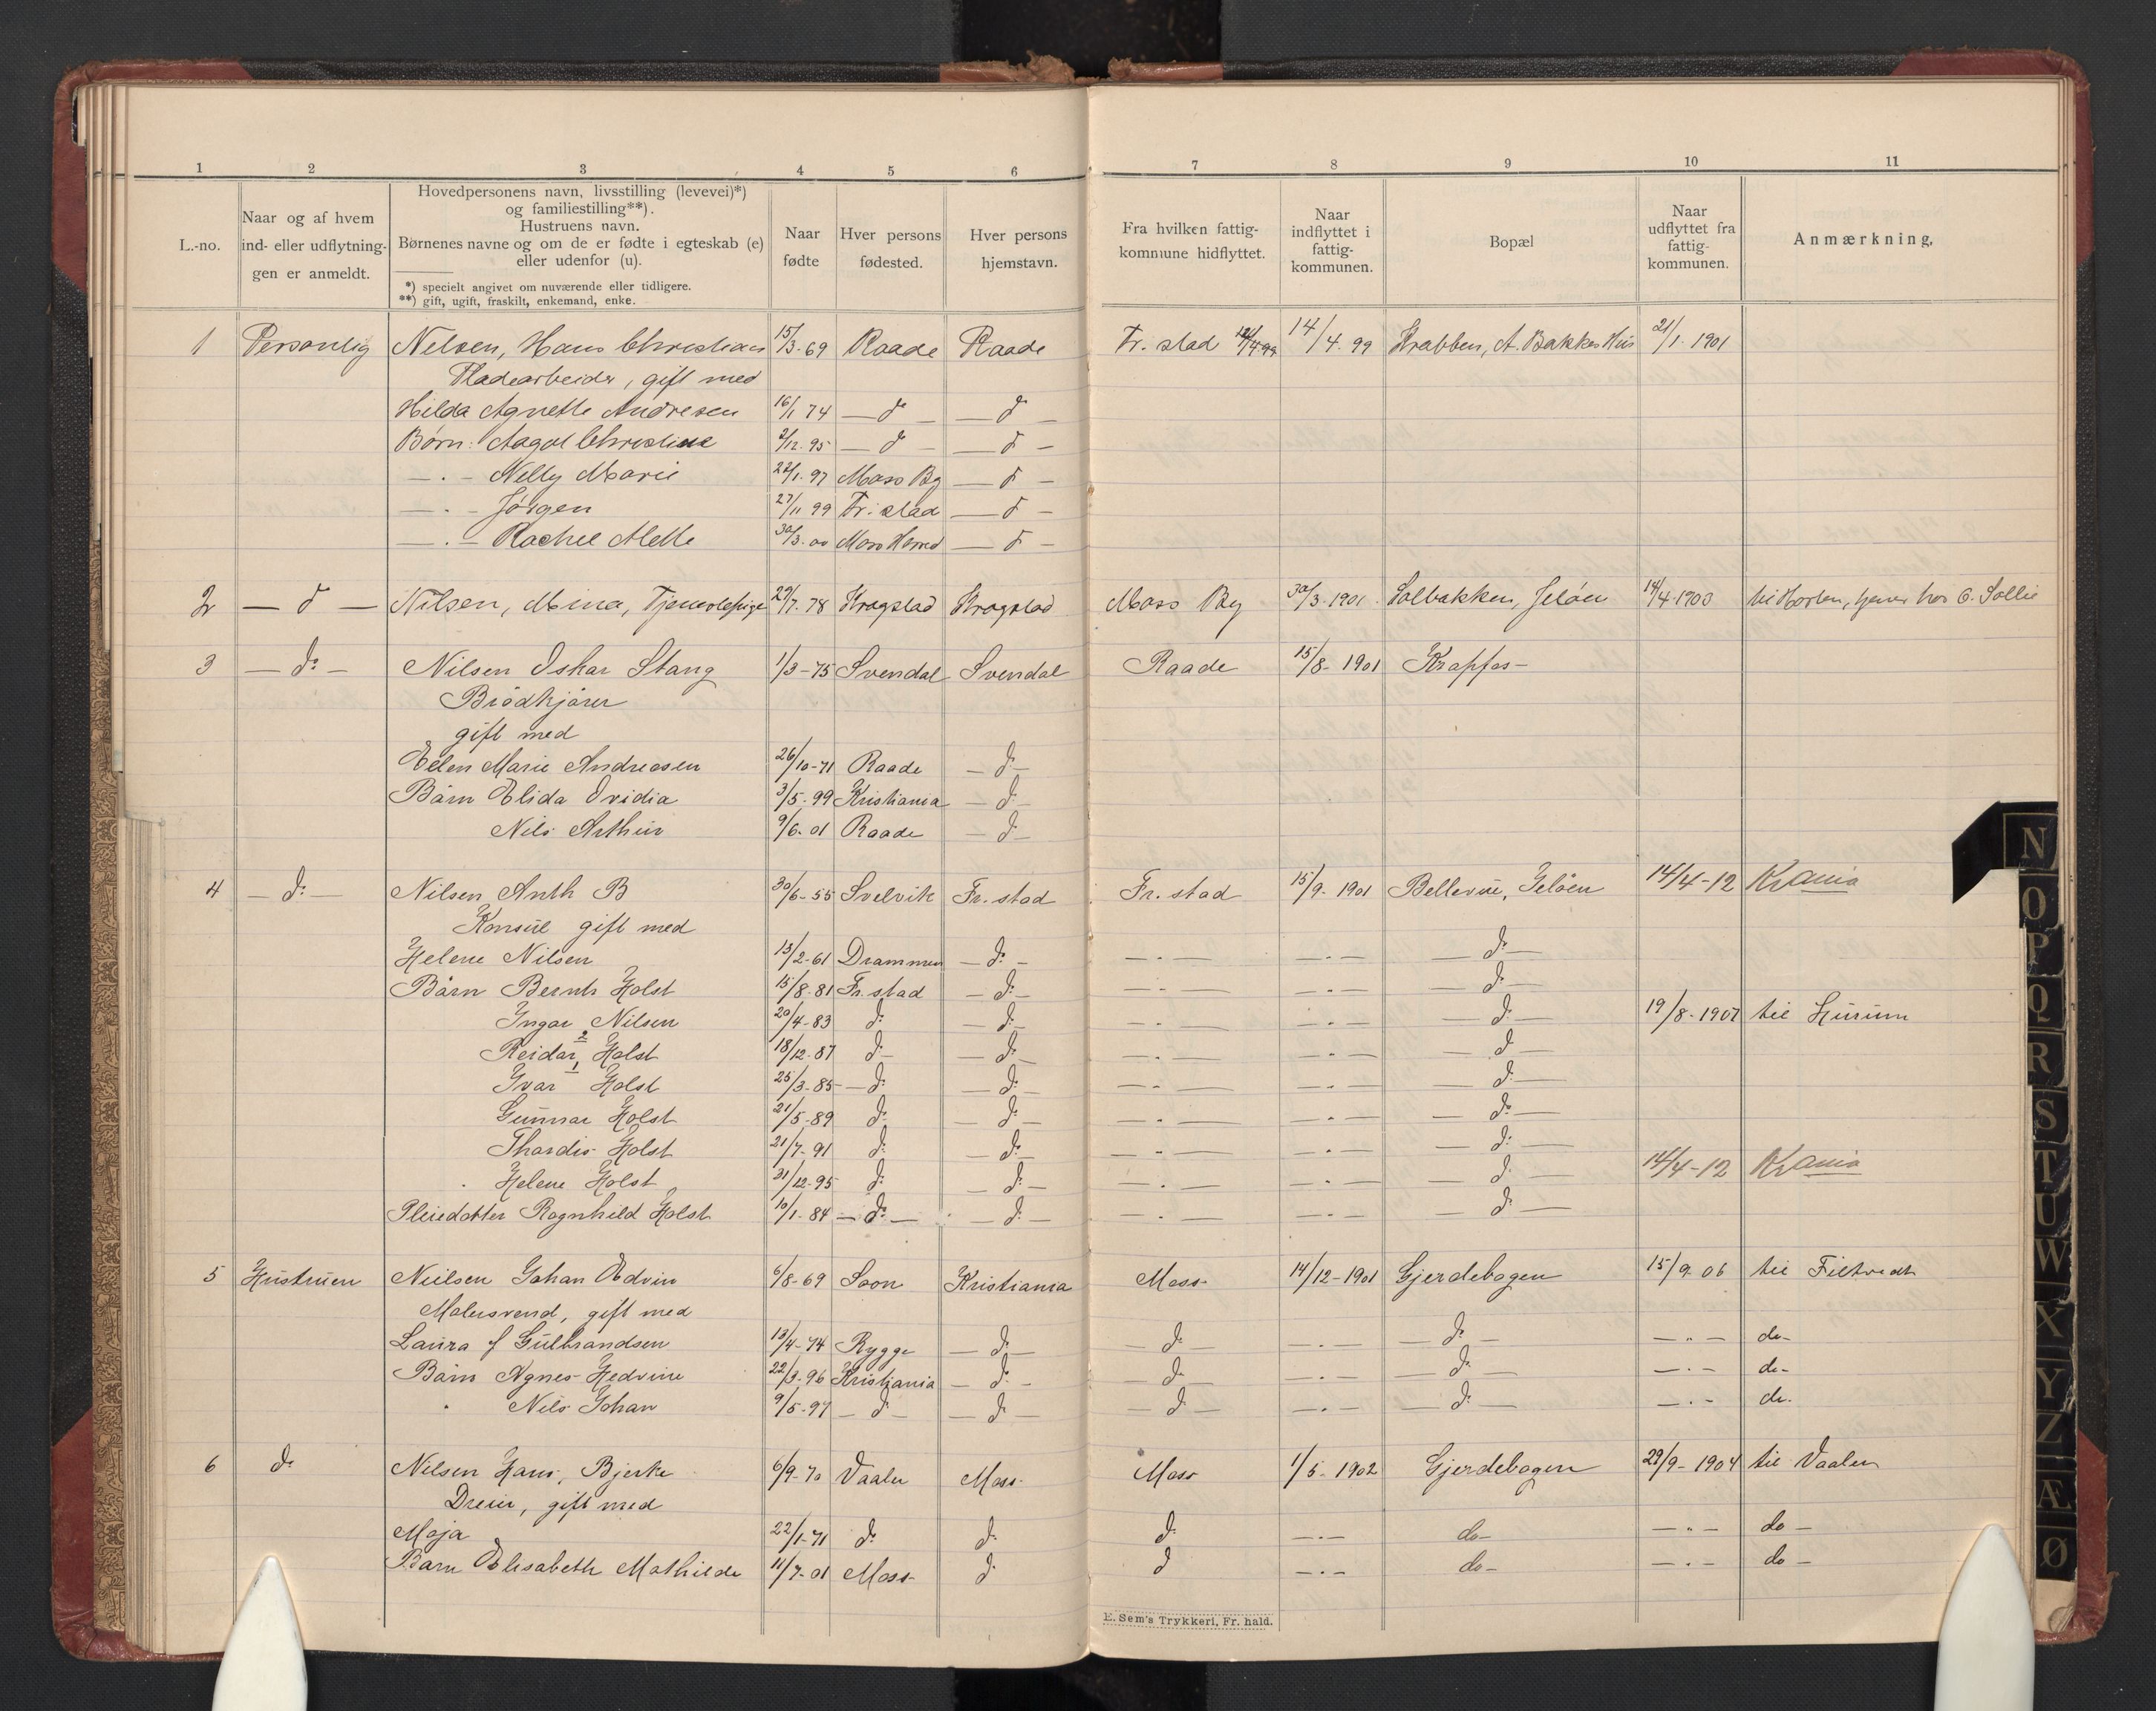 1 2 3 4 5 6 7 8 9 10 11
L.-no.
Naar og af hvem
ind- eller udflytning-
gen er anmeldt.
Hovedpersonens navn, livsstilling (levevei)*)
og familiestilling**).
Hustruens navn.
Børnenes navne og om de er fødte i egteskab (e)
eller udenfor (u).
*) specielt angivet om nuværende eller tidligere.
**) gift, ugift, fraskilt, enkemand, enke.
Naar
fødte
Hver persons
fødested.
Hver persons
hjemstavn.
Fra hvilken fattig-
kommune hidflyttet.
Naar
indflyttet i
fattig-
kommunen.
Bopæl
Naar
udflyttet fra
fattig-
kommunen.
Anmærkning,
1 Personlig Nilsen, Hans Christian 15/3-69 Raade Raade Fr. stad 14/4.99 Krabben, A. Bakkes Hus 21/1.1901
Pladearbeider, gift med
Hilda Agnette Andresen 16/1 74 — d — — d —
Børn: Aagot Christine 2/12.95 — d — — d —
— . — Nelly Marie 22/1.97 Moss By — d —
— . — Jørgen 27/11 99 Fr. stad — d —
— . — Rachel Alette 30/3.00 Moss Herred — d —
2 — d — Nilsen, Mina, Tjenestepige 29/7.78 Kragstad Kragstad Moss By 30/3.1901 Solbakken, Jeløen 14/4.1903 til Horten, hos C. Sollie
3 — do — Nilsen Oskar Stang 1/3-75 Svendal Svendal Raade 15/8-1901 Krapfos-
Brødkjører
gift med
Ellen Marie Andreasen 26/10-71 Raade — do —
Børn Elida Ovidia 3/5-99 Kristiania — do —
Nils Arthur 9/6-01 Raade — do —
4 — do — Nilsen Anth B 30/6-55 Svelvik Fr. stad Fr. stad 15/9-1901 Bellevue, Jeløen 14/4-12 Krania
Konsul gift med
Helene Nilsen 13/2-61 Drammen — do — — . — — . — — do —
Børn Bernth Holst 15/8-81 Fr. stad — do — — . — — . — — do —
Ingar Nilsen 20/4-83 do — do — — . — — . — — do — 19/8-1907 til Hurum
Reidar 2 Holst 18/12-87 do — do — — . — — . — — do —
Ivar 1 Holst 25/3-85 — do — do — — . — — . — — do —
Gunnar Holst 21/5-89 do — do — — . — — . — — do —
Thordis Holst 21/7-91 do — do — — . — — . — — do —
. Helene Holst 31/12-95 do — do — — . — — . — — do — 14/4-12 Krania
Pleiedatter Ragnhild Holst 10/1-84 — do — — do — — . — — . — — do —
5 Hustruen Nielsen Johan Edvin 6/8-69 Soon Kristiania Moss 14/12-1901 Gjerdebogen 15/9 06 til Filtvedt
Malersvend, gift med
Laura f Gulbrandsen 13/4-74 Rygge — do — — do — — . — — do — — " — do-
Børn Agnes Hedvine 22/3-96 Kristiania — do — — do — — . — — do — — . — do-
" Nils Johan 9/5-97 — do — — do — — do — — . — — do — — . — do.
6 do Nilsen Hans, Bjerke 6/9-70 Vaaler Moss Moss 1/5-1902 Gjerdebogen 29/9-1904 til Vaaler
Dreier, gift med
Maja 22/1-71 do do do — . — do — — " — do —
Barn Elisabeth Mathilde 11/7-01 Moss do do — . — do — — . — do —
E. Sem's Trykkeri, Fr. hald.
N
O
P
Q
R
S
T
U
W
X
Y
Z
Æ
Ø